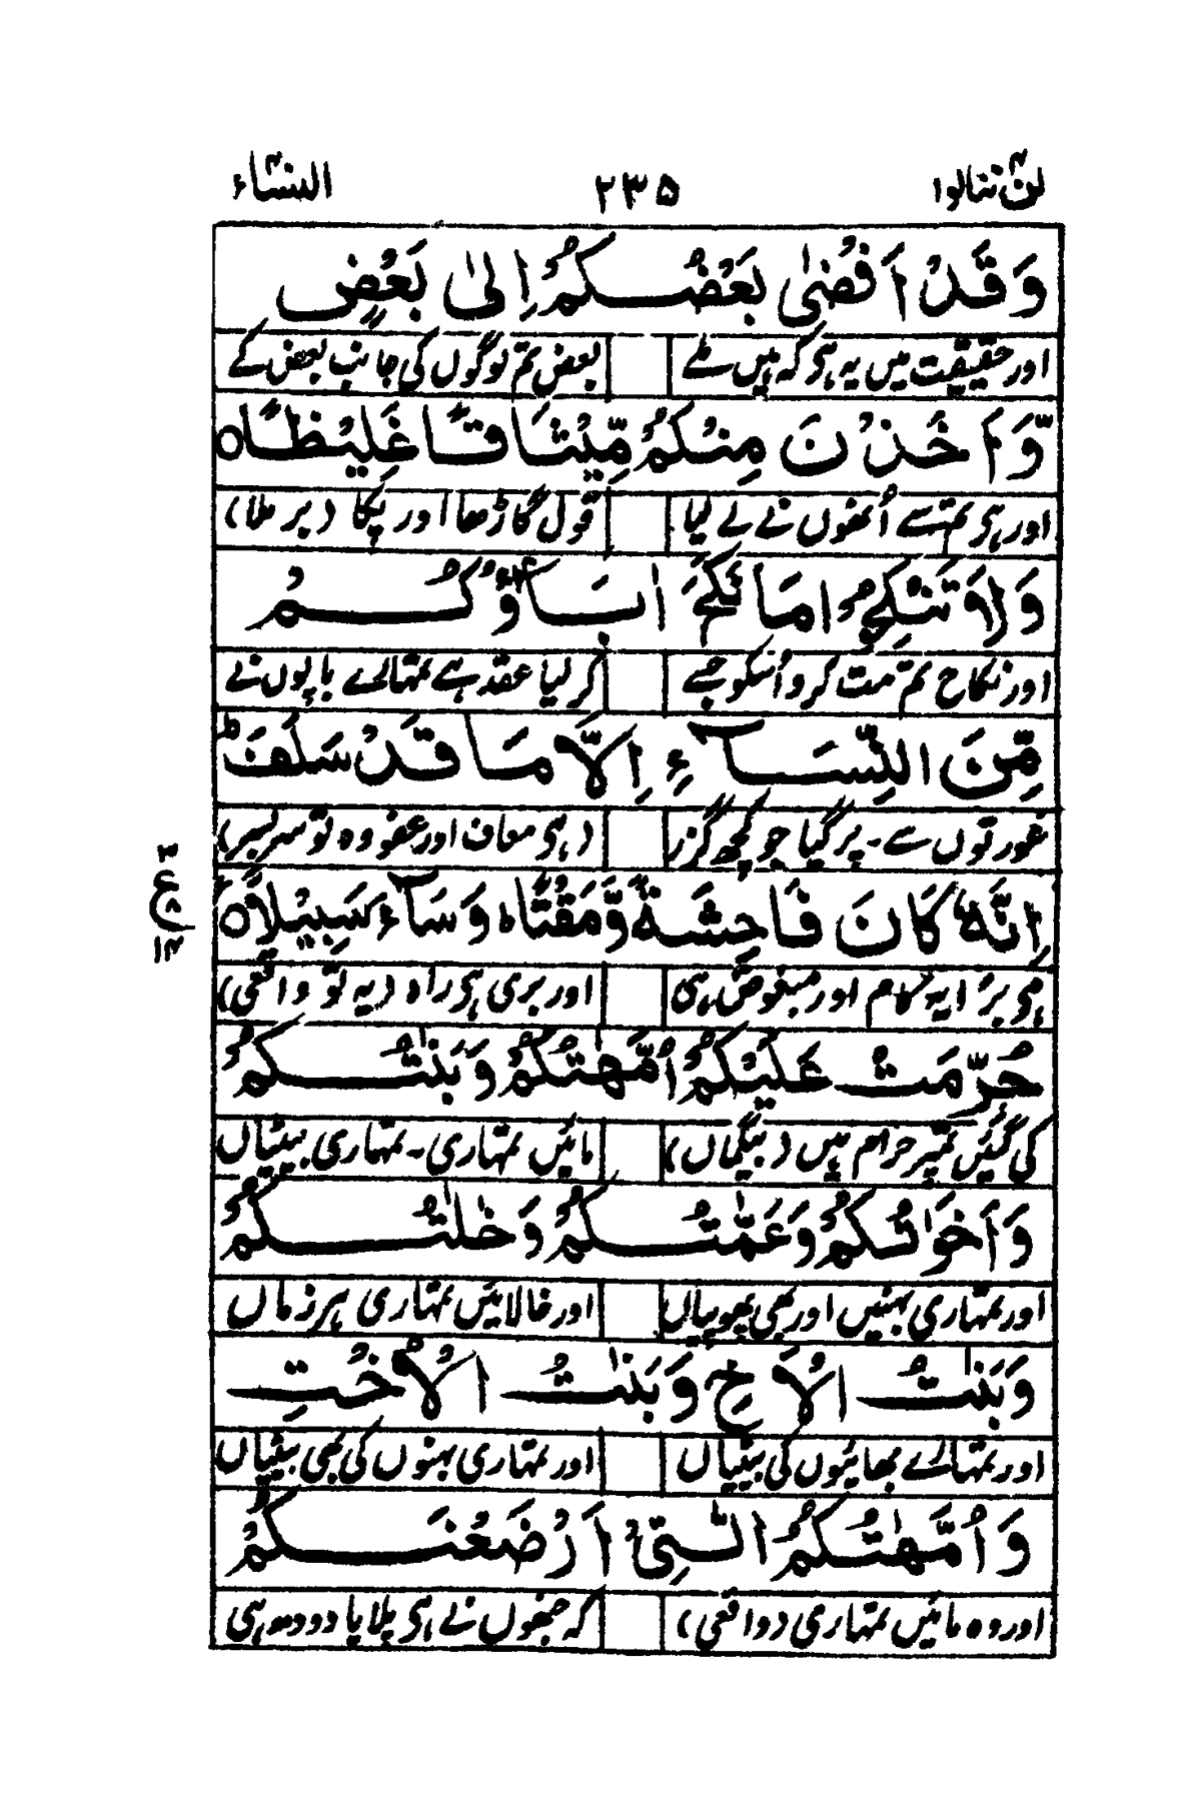 لن تنالوا ۴ ۲۳۵ النساء ۴
وَقَدْ اَفْضٰى بَعْضُكُمْ اِلٰى بَعْضٍ
اور حقیقت میں یہ ہی کہ ہیں ملے بعض تم لوگوں کی جانب بعض کے
وَّاَخَذْنَ مِنْكُمْ مِّيْثَاقًا غَلِيْظًا ۝
اور ہی تم سے اُنھوں نے لے لیا قول گاڑھا اور پکا (بر ملا)
وَلَا تَنْكِحُوْا مَا نَكَحَ اٰبَآؤُكُمْ
اور نکاح تم مت کرو اُسکو جسے کر لیا عقد ہے تمہالے باپوں نے
مِّنَ النِّسَآءِ اِلَّا مَا قَدْ سَلَفَ ؕ
عورتوں سے ۔ پر گیا جو کچھ گزر (ہی معاف اور عفو وہ تو سربسر)
اِنَّهٗ كَانَ فَاحِشَةً وَّمَقْتًا ؕ وَسَآءَ سَبِيْلًا ۝
ہی برا یہ کام اور مبغوض ہی اور بری ہی راہ (یہ تو واقعی)
ع
حُرِّمَتْ عَلَيْكُمْ اُمَّهٰتُكُمْ وَبَنٰتُكُمْ
کی گئیں تمپر حرام ہیں (بیگماں) مائیں تمہاری ۔ تمہاری بیٹیاں
وَاَخَوٰتُكُمْ وَعَمّٰتُكُمْ وَخٰلٰتُكُمْ
اور تمہاری بہنیں اور بھی پھوپیاں اور خالائیں تمہاری ہر زماں
وَبَنٰتُ الْاَخِ وَبَنٰتُ الْاُخْتِ
اور تمہالے بھائیوں کی بیٹیاں اور تمہاری بہنوں کی بھی بیٹیاں
وَاُمَّهٰتُكُمُ الّٰتِيْٓ اَرْضَعْنَكُمْ
اور وہ مائیں تمہاری (واقعی) کہ جنھوں نے ہی پلایا دودھ ہی